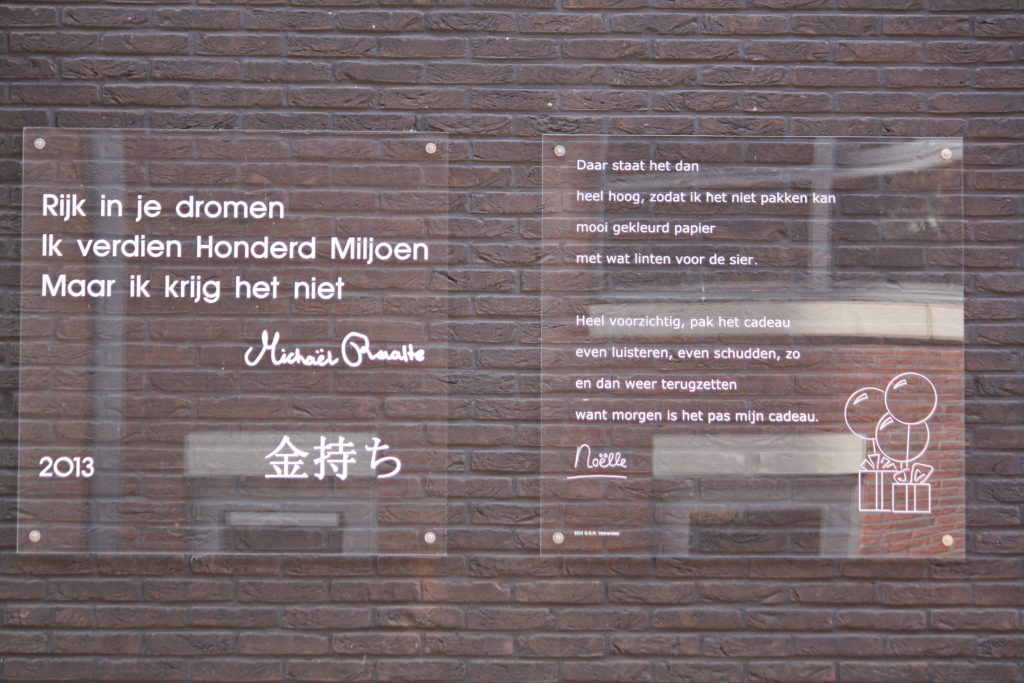 Rijk in je dromen
Ik verdien Honderd Miljoen
Maar ik krijg het niet
Michaël Raalte
2013
金持ち
Daar staat het dan
heel hoog, zodat ik het niet pakken kan
mooi gekleurd papier
met wat linten voor de sier.
Heel voorzichtig, pak het cadeau
even luisteren, even schudden, zo
en dan weer terugzetten
want morgen is het pas mijn cadeau.
Noëlle
2014